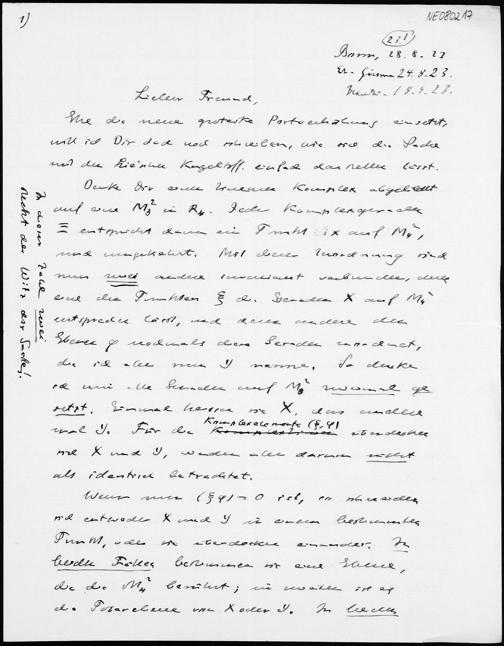 1)
NE080217
231
Bonn, 28.8.23
24.8.23.
18.9.23.
Lieber Freund,
Ehe die neue groteske Portoerhöhung einsetzt,
will ich Dir doch noch schreiben, wie sich die Sache
mit den Lie'schen Kugeln einfach darstellen lässt.
Denke Dir einen linearen Komplex abgebildet
auf eine M₃² in R₄. Jeder Komplexgeraden
entspricht dann ein Punkt X auf M₄²,
und umgekehrt. Mit dieser Zuordnung sind
nun zwei andere invariant verbunden, deren
eine den Punkten die Geraden X auf M₄²
entsprechen lässt, und deren andere den
Ebenen φ nochmals diese Geraden zuordnet,
die ich aber nun Y nenne. So denke
ich mir alle Geraden auf M₃² zweimal ge
setzt. Einmal heissen sie X, das andere
mal Y. Für die Komplexelemente (ξ,φ) überdecken
sich X und Y, werden aber darum nicht
als identisch betrachtet.
Wenn nun (ξφ) = 0 ist, so schneiden
sich entweder X und Y in einem bestimmten
Punkt, oder sie überdecken einander. In
beiden Fällen bestimmen sie eine Ebene,
die die M₄² berührt; im zweiten ist es
die Polarebene von X oder Y. In beiden
In dieser Zahl zwei
steckt der Witz der Sache!